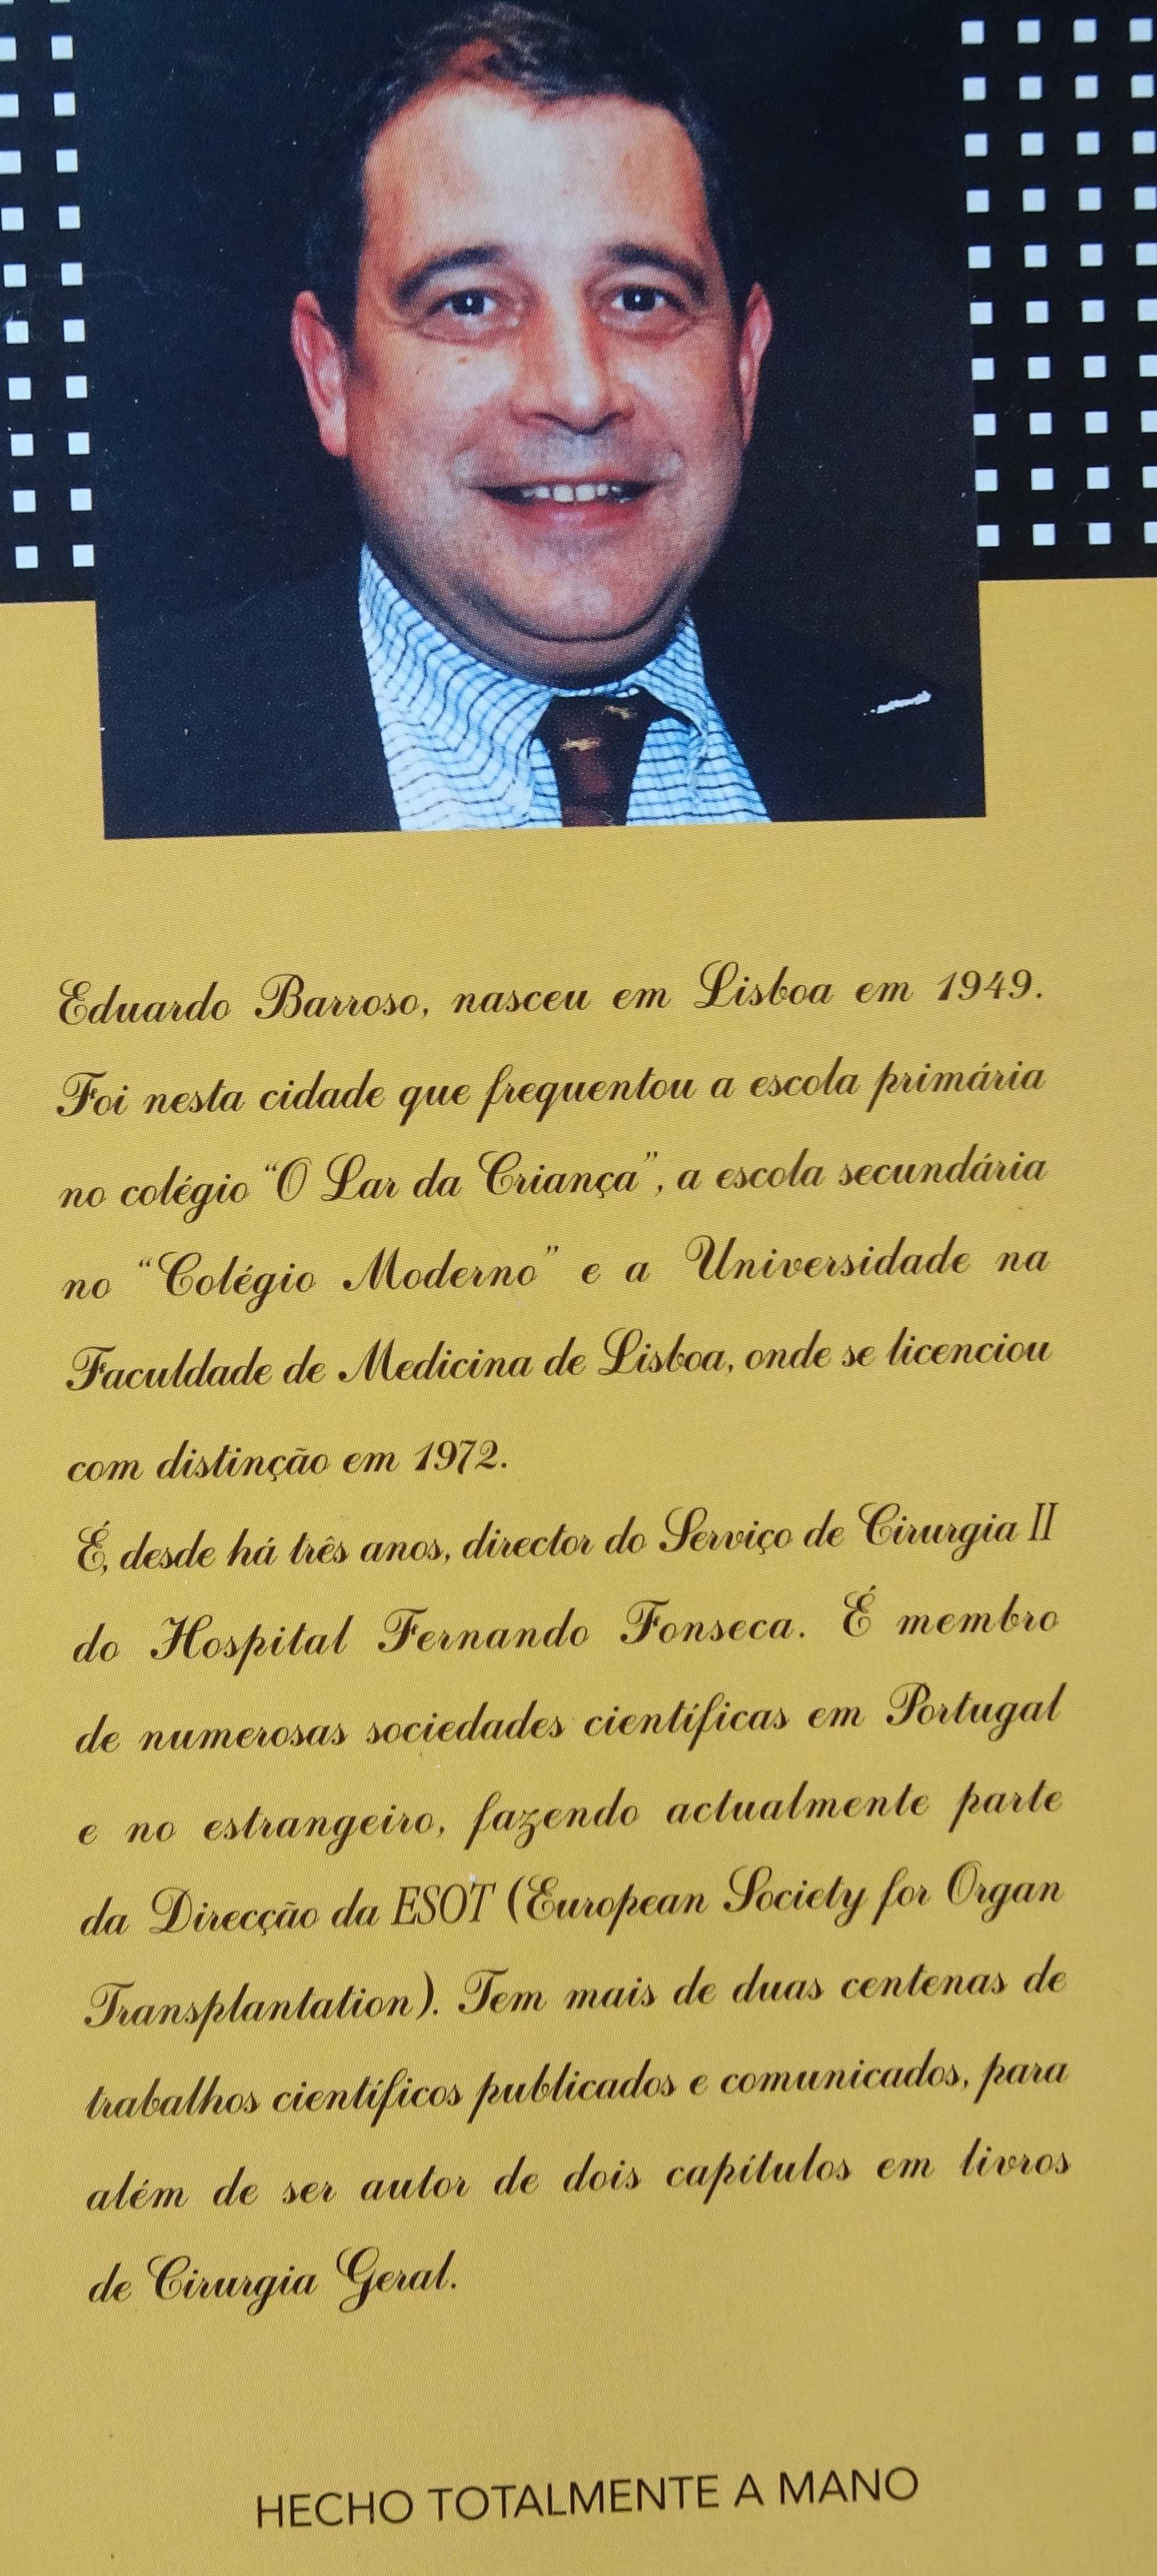 Eduardo Barroso, nasceu em Lisboa em 1949.
Foi nesta cidade que frequentou a escola primária
no colégio “O Lar da Criança”, a escola secundária
no “Colégio Moderno” e a Universidade na
Faculdade de Medicina de Lisboa, onde se licenciou
com distinção em 1972.
É, desde há três anos, director do Serviço de Cirurgia II
do Hospital Fernando Fonseca. É membro
de numerosas sociedades científicas em Portugal
e no estrangeiro, fazendo actualmente parte
da Direcção da ESOT (European Society for Organ
Transplantation). Tem mais de duas centenas de
trabalhos científicos publicados e comunicados, para
além de ser autor de dois capítulos em livros
de Cirurgia Geral.
HECHO TOTALMENTE A MANO